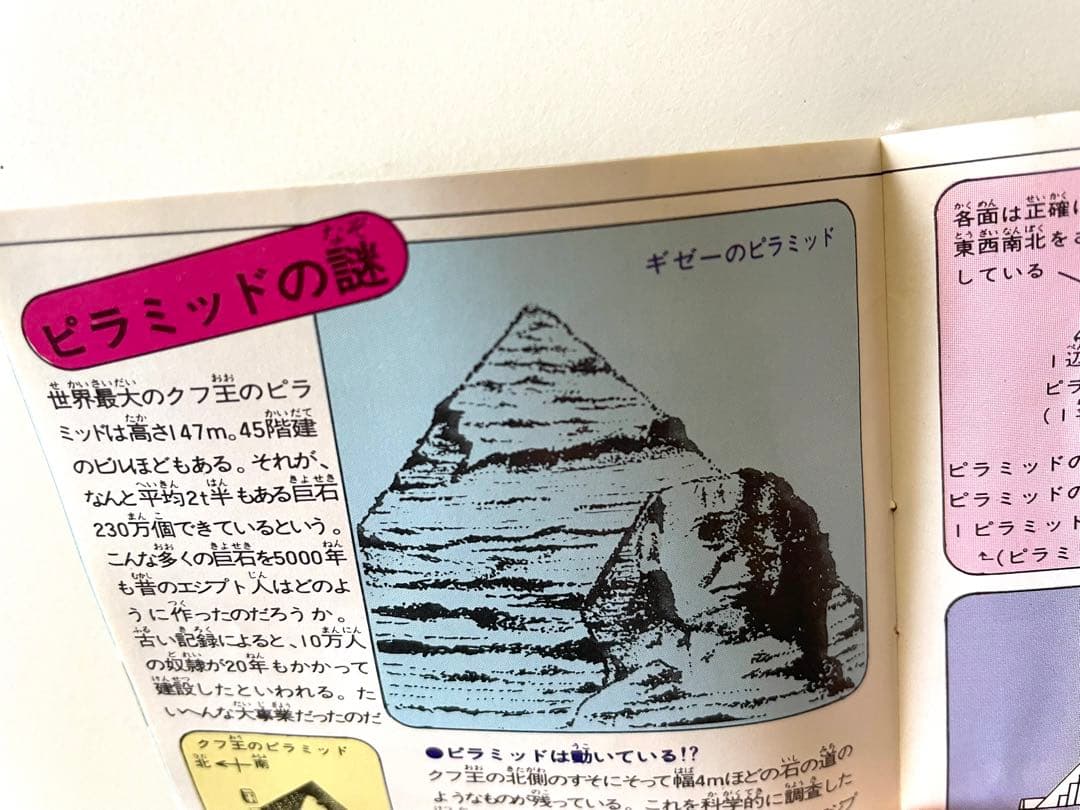 ピラミッドの謎
なぞ
ギゼーのピラミッド
世界最大のクフ王のピラ
ミッドは高さ147m。45階建
のビルほどもある。それが、
なんと平均2t半もある巨石
230万個でできているという。
こんな多くの巨石を5000年
も昔のエジプト人はどのよ
うに作ったのだろうか。
古い記録によると、10万人
の奴隷が20年もかかって
建設したといわれる。た
いへんな大事業だったのだ
クフ王のピラミッド
北 南
●ピラミッドは動いている!?
クフ王の北側のすそにそって幅4mほどの石の道の
ようなものが残っている。これを科学的に調査した
各面は正確に
東西南北を
している
1辺
ピラ
(1
ピラミッドの
ピラミッドの
1ピラミット
(ピラミ